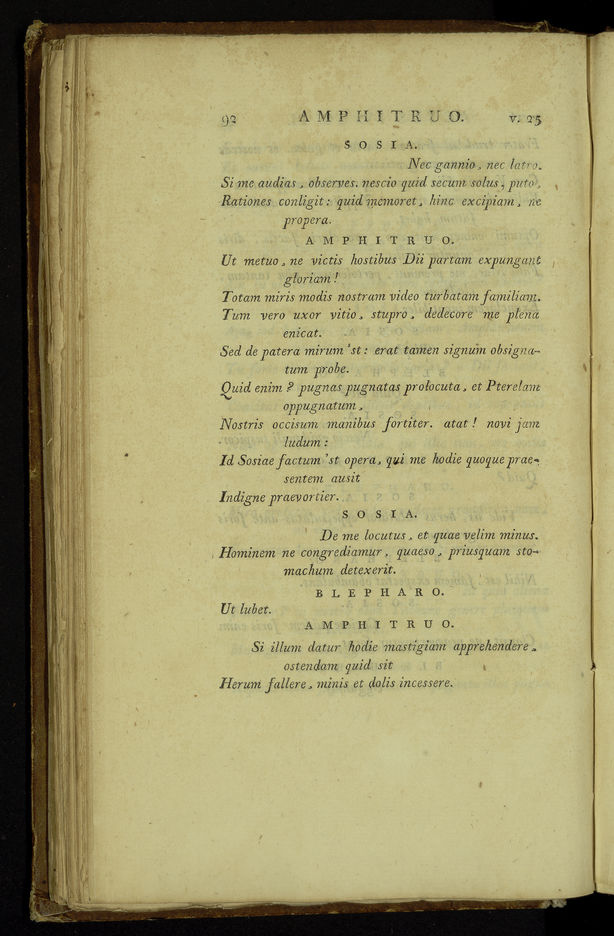 92 AMPHITRUO. v. 25
SOSIA.
Nec gannio, nec latro.
Si me audias, observes. nescio quid secum solus, puto,
Rationes conligit: quid memoret, hinc excipiam, ne
propera.
AMPHITRUO.
Ut metuo, ne victis hostibus Dii partam expungant
gloriam!
Totam miris modis nostram video turbatam familiam.
Tum vero uxor vitio, stupro, dedecore me plena
enicat.
Sed de patera mirum 'st: erat tamen signum obsigna-
tum probe.
Quid enim? pugnas pugnatas prolocuta, et Pterelam
oppugnatum,
Nostris occisum manibus fortiter. atat! novi jam
ludum:
Id Sosiae factum 'st opera, qui me hodie quoque prae-
sentem ausit
Indigne praevortier.
SOSIA.
De me locutus, et quae velim minus.
Hominem ne congrediamur, quaeso, priusquam sto-
machum detexerit.
BLEPHARO.
Ut lubet.
AMPHITRUO.
Si illum datur hodie mastigiam apprehendere,
ostendam quid sit
Herum fallere, minis et dolis incessere.